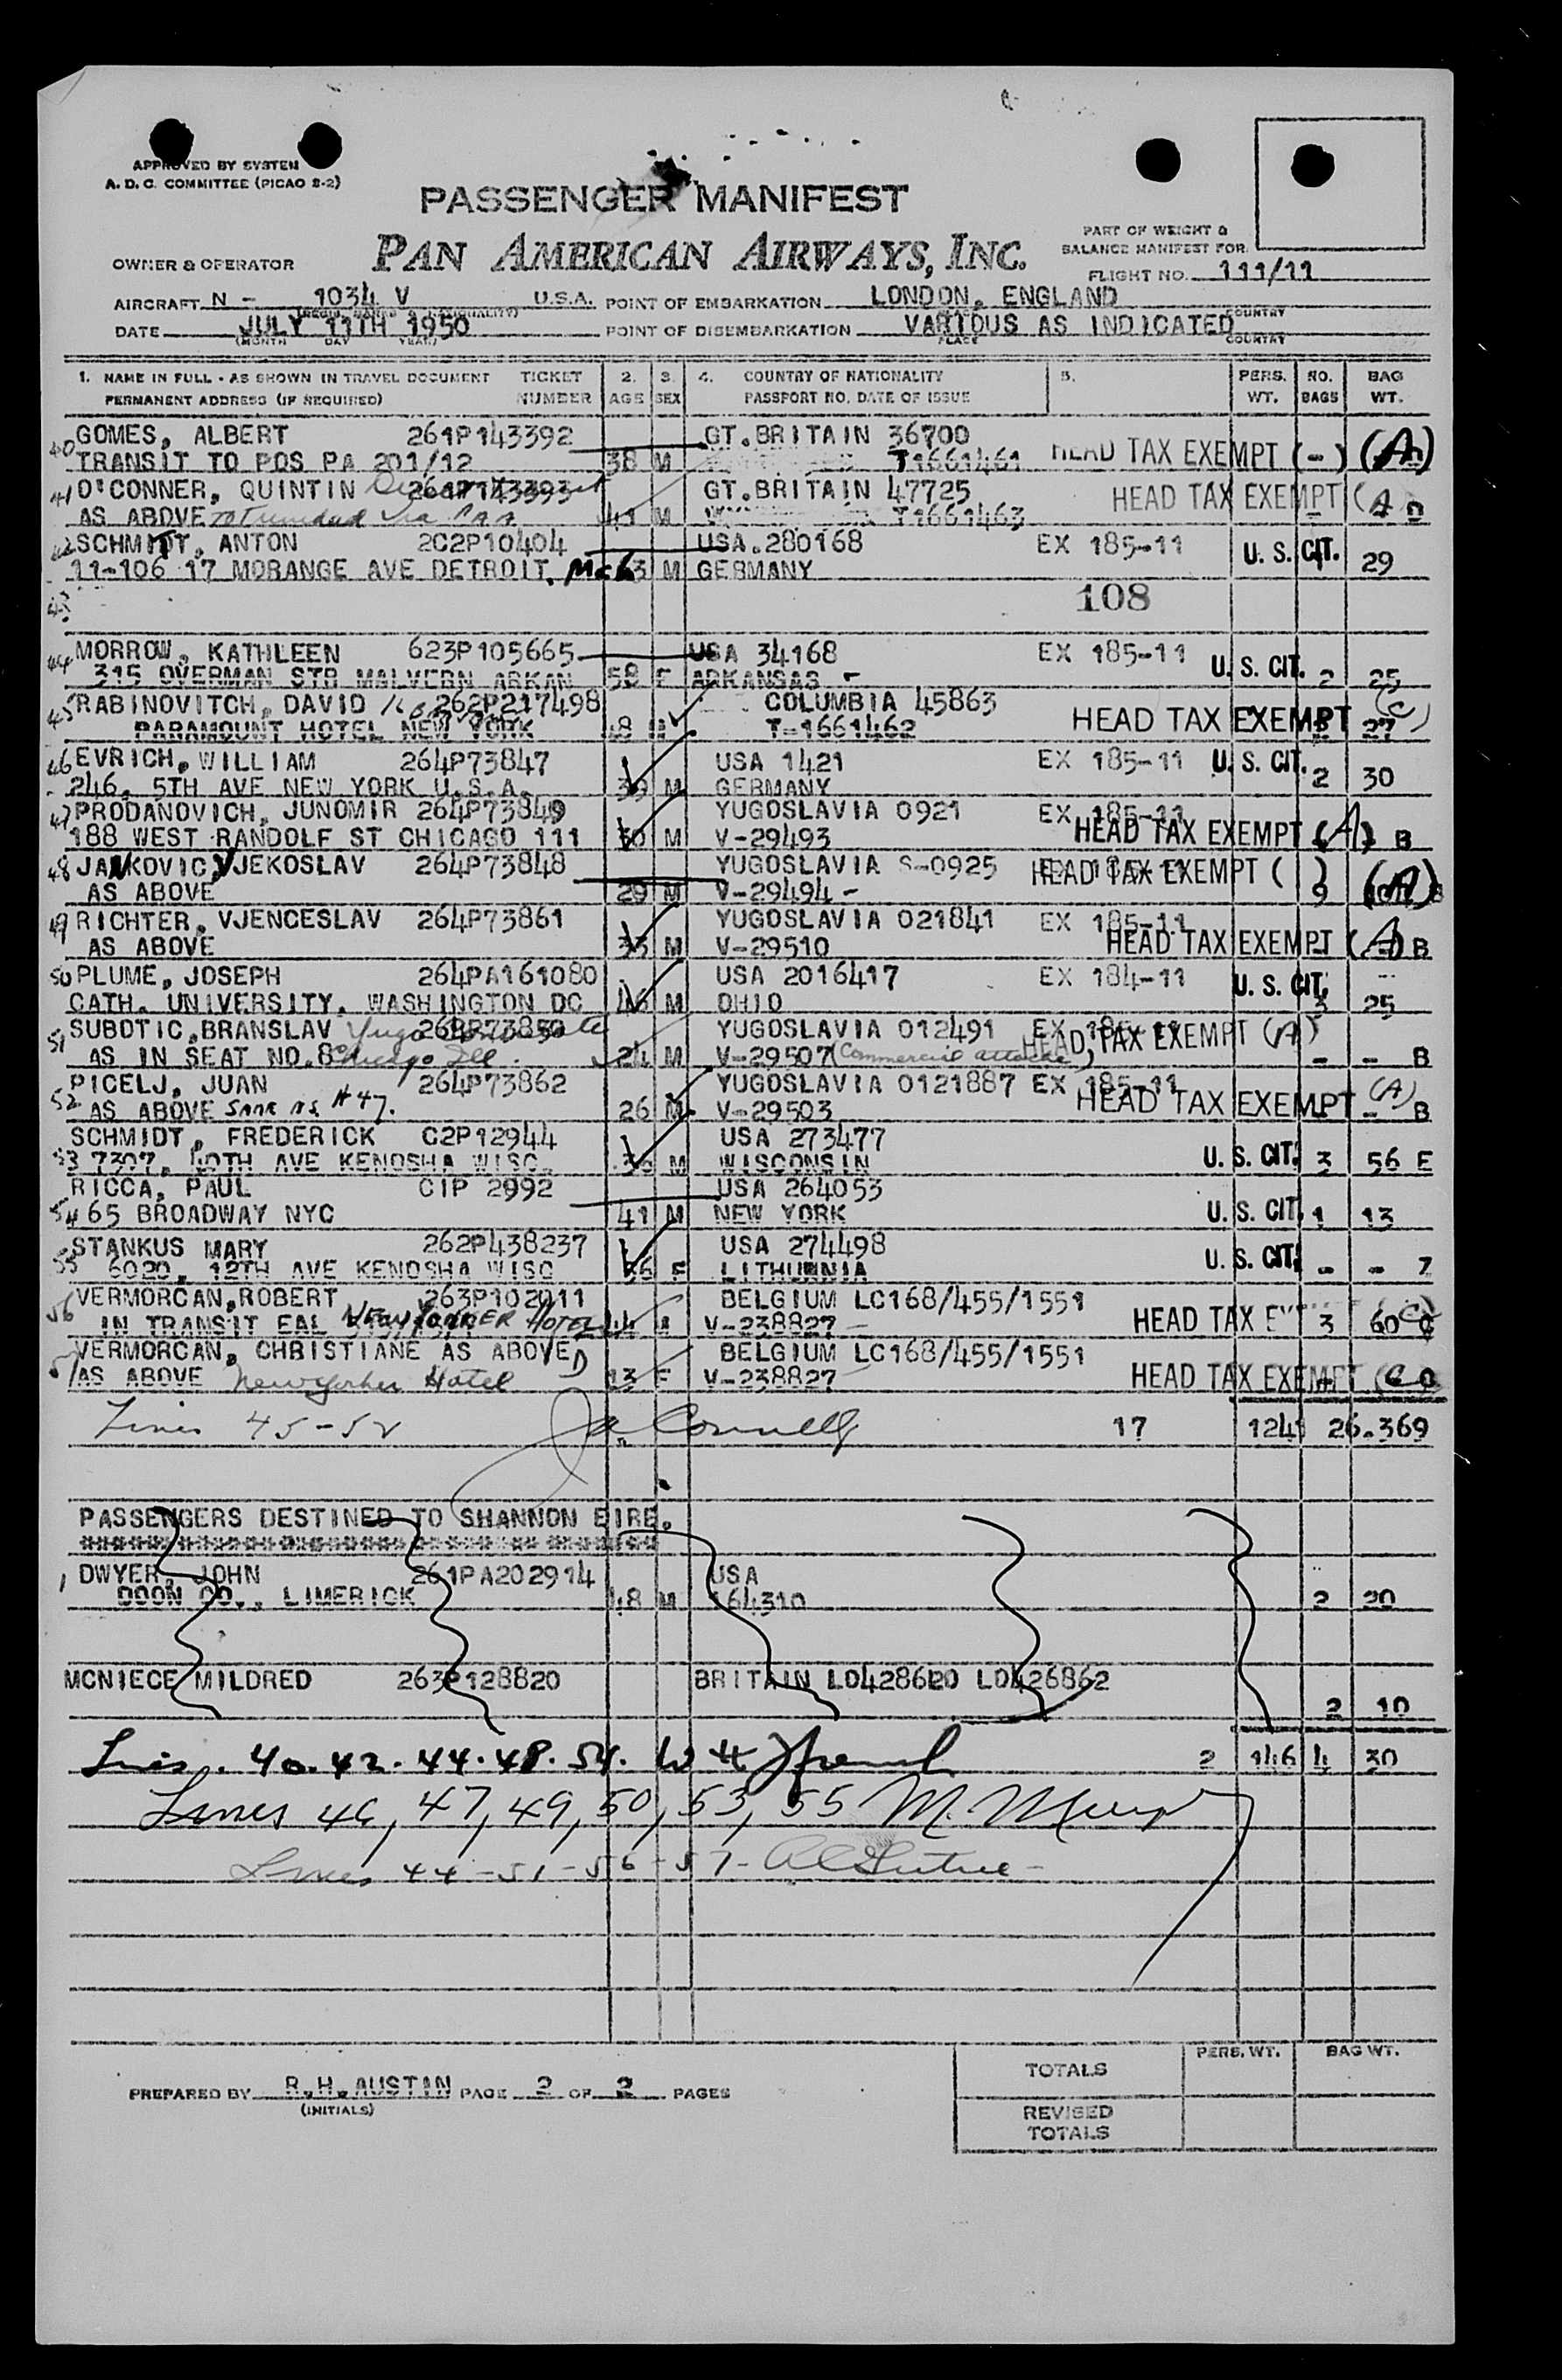 APPROVED BY SYSTEM
A. D. C. COMMITTEE (PICAO 2-2)
PASSENGER MANIFEST
PAN AMERICAN AIRWAYS, INC.
PART OF WEIGHT &
BALANCE MANIFEST FOR
OWNER & OPERATOR
FLIGHT NO. 111/11
AIRCRAFT N - 1034 V U.S.A. POINT OF EMBARKATION LONDON, ENGLAND
DATE JULY 11TH 1950 POINT OF DISEMBARKATION VARIOUS AS INDICATED
(MONTH DAY YEAR) PLACE COUNTRY
1. NAME IN FULL - AS SHOWN IN TRAVEL DOCUMENT TICKET 2. 3. 4. COUNTRY OF NATIONALITY 5. PERS. NO. BAG
PERMANENT ADDRESS (IF REQUIRED) NUMBER AGE SEX PASSPORT NO. DATE OF ISSUE WT. BAGS WT.
40 GOMES, ALBERT 261P143392 GT.BRITAIN 36700
TRANSIT TO POS PA 201/12 38 M T1661461 HEAD TAX EXEMPT (-) (A)
41 O'CONNER, QUINTIN 261P143393 GT.BRITAIN 47725 HEAD TAX EXEMPT (A
AS ABOVE to Trinidad Via PAA 41 M T1661463 - D
42 SCHMITT, ANTON 2C2P10404 USA.280168 EX 185-11 U. S. CIT.
11-106 17 MORANGE AVE DETROIT, Mch 3 M GERMANY 29
43
108
44 MORROW, KATHLEEN 623P105665 USA 34168 EX 185-11 U. S. CIT.
315 OVERMAN STR MALVERN ARKAN 58 F ARKANSAS - 2 25
45 RABINOVITCH, DAVID 262P217498 COLUMBIA 45863 HEAD TAX EXEMPT (C)
PARAMOUNT HOTEL NEW YORK 48 M T-1661462 27
46 EVRICH, WILLIAM 264P73847 USA 1421 EX 185-11 U. S. CIT.
246, 5TH AVE NEW YORK U.S.A. 39 M GERMANY 2 30
47 PRODANOVICH, JUNOMIR 264P73849 YUGOSLAVIA 0921 EX 185-11
188 WEST RANDOLF ST CHICAGO 111 M V-29493 HEAD TAX EXEMPT (A) B
48 JANKOVIC, VJEKOSLAV 264P73848 YUGOSLAVIA S-0925 HEAD TAX EXEMPT ( )
AS ABOVE 29 M V-29494 - 9 (A) B
49 RICHTER, VJENCESLAV 264P73861 YUGOSLAVIA 021841 EX 185-11
AS ABOVE 33 M V-29510 HEAD TAX EXEMPT (A) B
50 PLUME, JOSEPH 264PA161080 USA 2016417 EX 184-11 U. S. CIT.
CATH. UNIVERSITY, WASHINGTON DC 46 M OHIO 3 25
51 SUBOTIC,BRANSLAV 264P73850 YUGOSLAVIA 012491 EX HEAD TAX EXEMPT (A)
AS IN SEAT NO.8 Chicago Ill. 24 M V-29507 (Commercial attache) - - B
52 PICELJ, JUAN 264P73862 YUGOSLAVIA 0121887 EX 185-11 (A)
AS ABOVE SAME AS #47. 26 M V-29503 HEAD TAX EXEMPT - B
53 SCHMIDT, FREDERICK C2P12944 USA 273477
7307, 40TH AVE KENOSHA WISC. 36 M WISCONSIN U. S. CIT. 3 56 E
54 RICCA, PAUL CIP 2992 USA 264053
65 BROADWAY NYC 41 M NEW YORK U. S. CIT. 1 13
55 STANKUS MARY 262P438237 USA 274498
6020, 12TH AVE KENOSHA WISC 56 F LITHUANIA U. S. CIT. - - Z
56 VERMORCAN,ROBERT 263P102011 BELGIUM LC168/455/1551
IN TRANSIT EAL NEW YORKER HOTEL 44 M V-238827 - HEAD TAX 3 60 C
57 VERMORCAN, CHRISTIANE AS ABOVE D BELGIUM LC168/455/1551
AS ABOVE New Yorker Hotel 13 F V-238827 HEAD TAX EXEMPT
Lines 45-52 J A Connelly 17 124 26.369
PASSENGERS DESTINED TO SHANNON EIRE.
1 DWYER, JOHN 261PA202914 USA
DOON CO., LIMERICK 48 M 164310 2 20
MCNIECE MILDRED 263P128820 BRITAIN LO428620 LO426862
2 10
Lines. 40. 42. 44. 48. 54. 2 146 4 30
Lines 46, 47, 49, 50, 53, 55
Lines 44-51-56-57-
PREPARED BY R.H.AUSTIN PAGE 2 OF 2 PAGES
(INITIALS)
PERS. WT. BAG WT.
TOTALS
REVISED
TOTALS